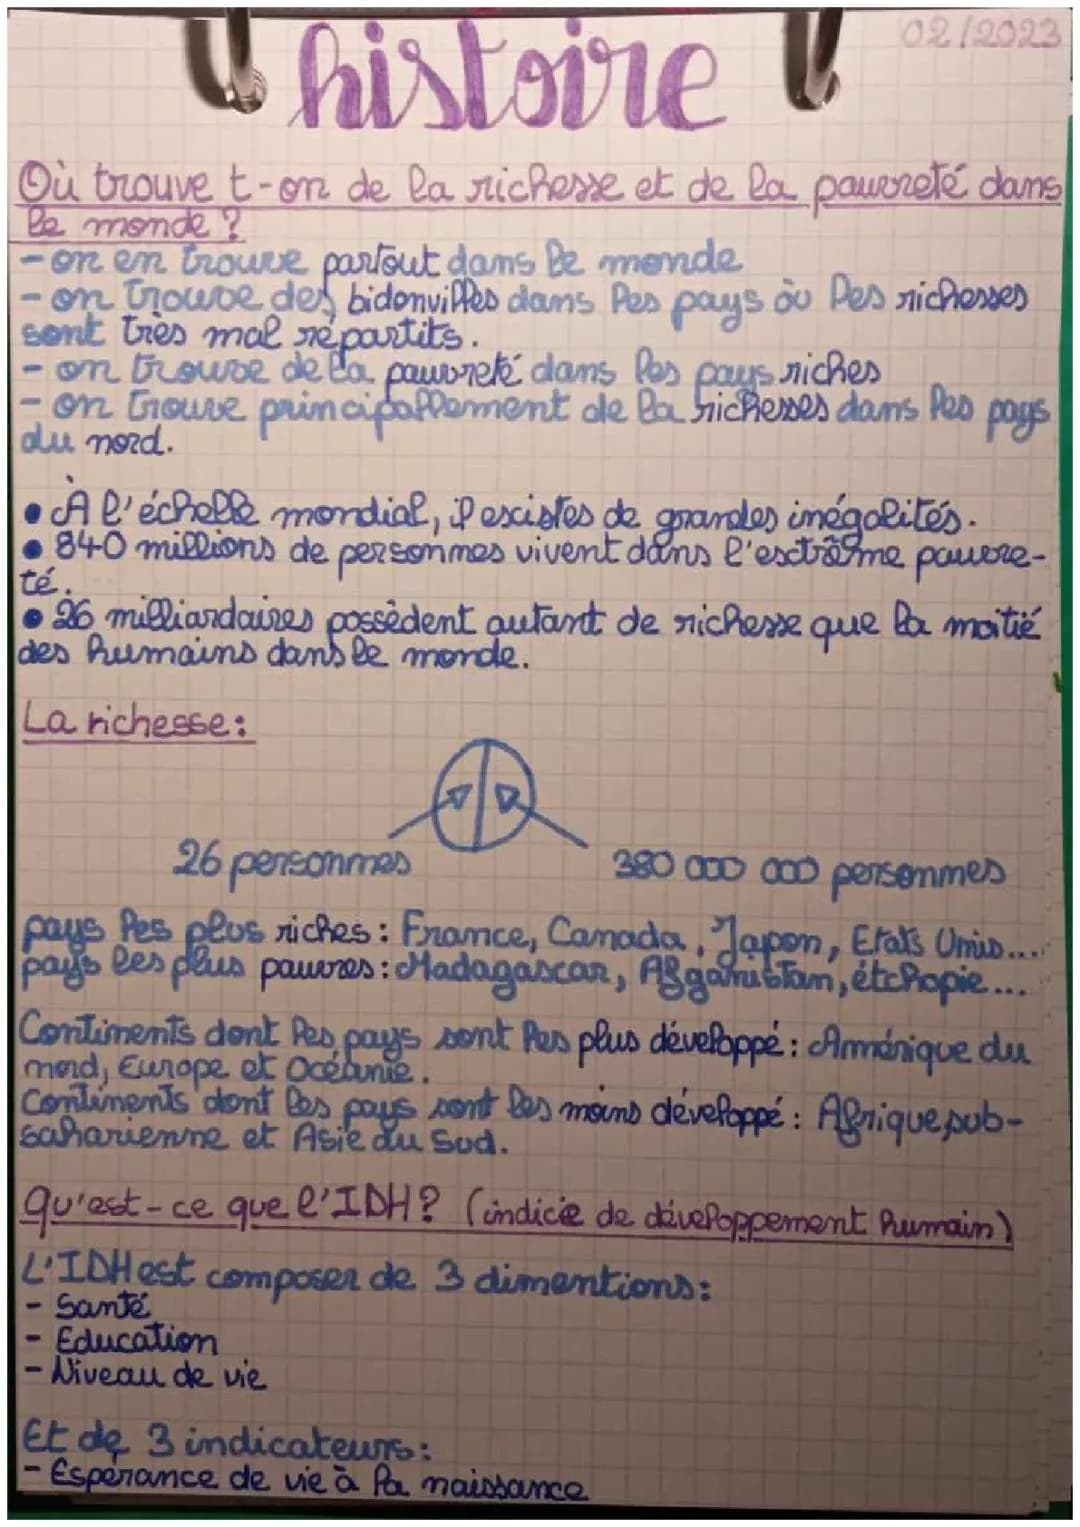 02/2023
histoire
Où trouve t-on de la richesse et de la pauvreté dans
le monde ?
- on en trouve partout dans le monde
- on trouve des bidonvilles dans les pays òu les richesses
sont très mal répartits.
- on trouve de la pauvreté dans les pays riches
- on trouve principallement de la richesses dans les pays
du nord.
• À l'échelle mondial, il escistes de grandes inégalités.
• 840 millions de personnes vivent dans l'esctrême pauvre-
té.
• 26 milliardaires possèdent autant de richesse que la moitié
des humains dans le monde.
La richesse :
26 personnes
380 000 000 personnes
pays les plus riches : France, Canada, Japon, Etats Unis...
pays les plus pauvres : Madagascar, Afganistan, étchopie...
Continents dont les pays sont les plus développé : Amérique du
nord, Europe et Océanie.
Continents dont les pays sont les moins développé : Afrique sub-
saharienne et Asie du Sud.
Qu'est-ce que l'IDH ? (indicie de développement humain)
L'IDH est composer de 3 dimentions :
- Santé
- Education
- Niveau de vie
Et de 3 indicateurs :
- Espérance de vie à la naissance